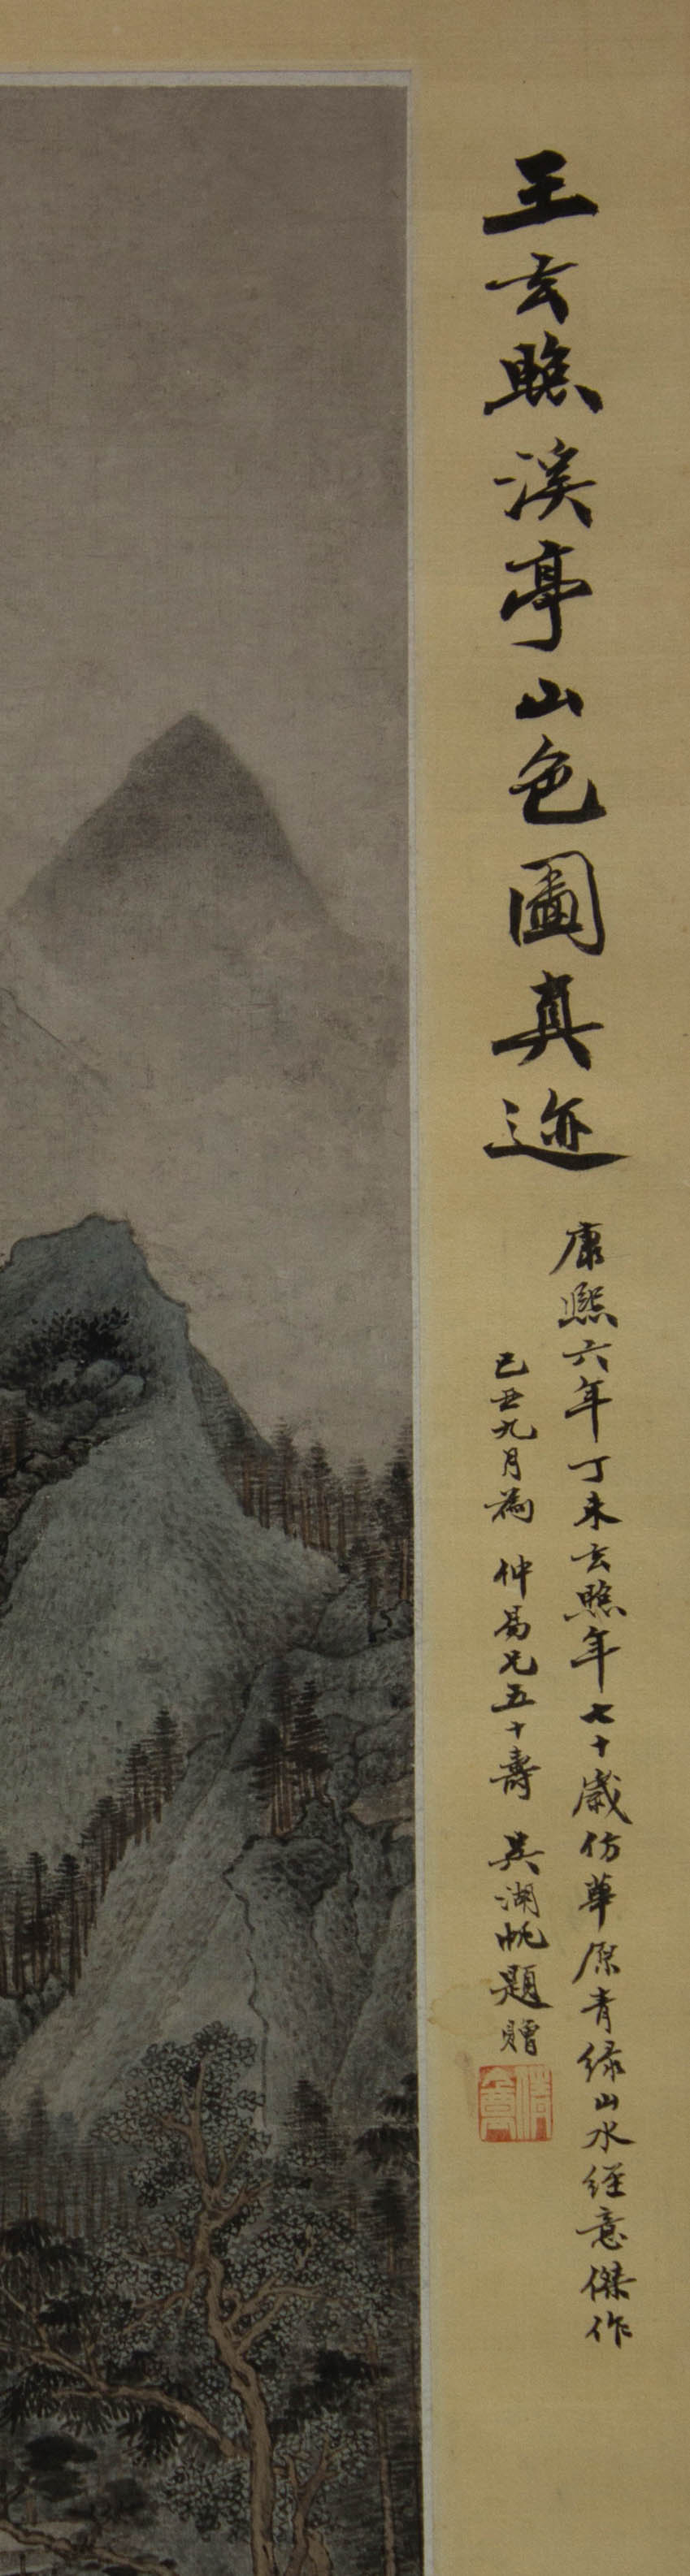 王玄照溪亭山色圖真迹
康熙六年丁未玄照年七十歲仿華原青綠山水經意傑作
己丑九月為仲易兄五十壽 吳湖帆題贈